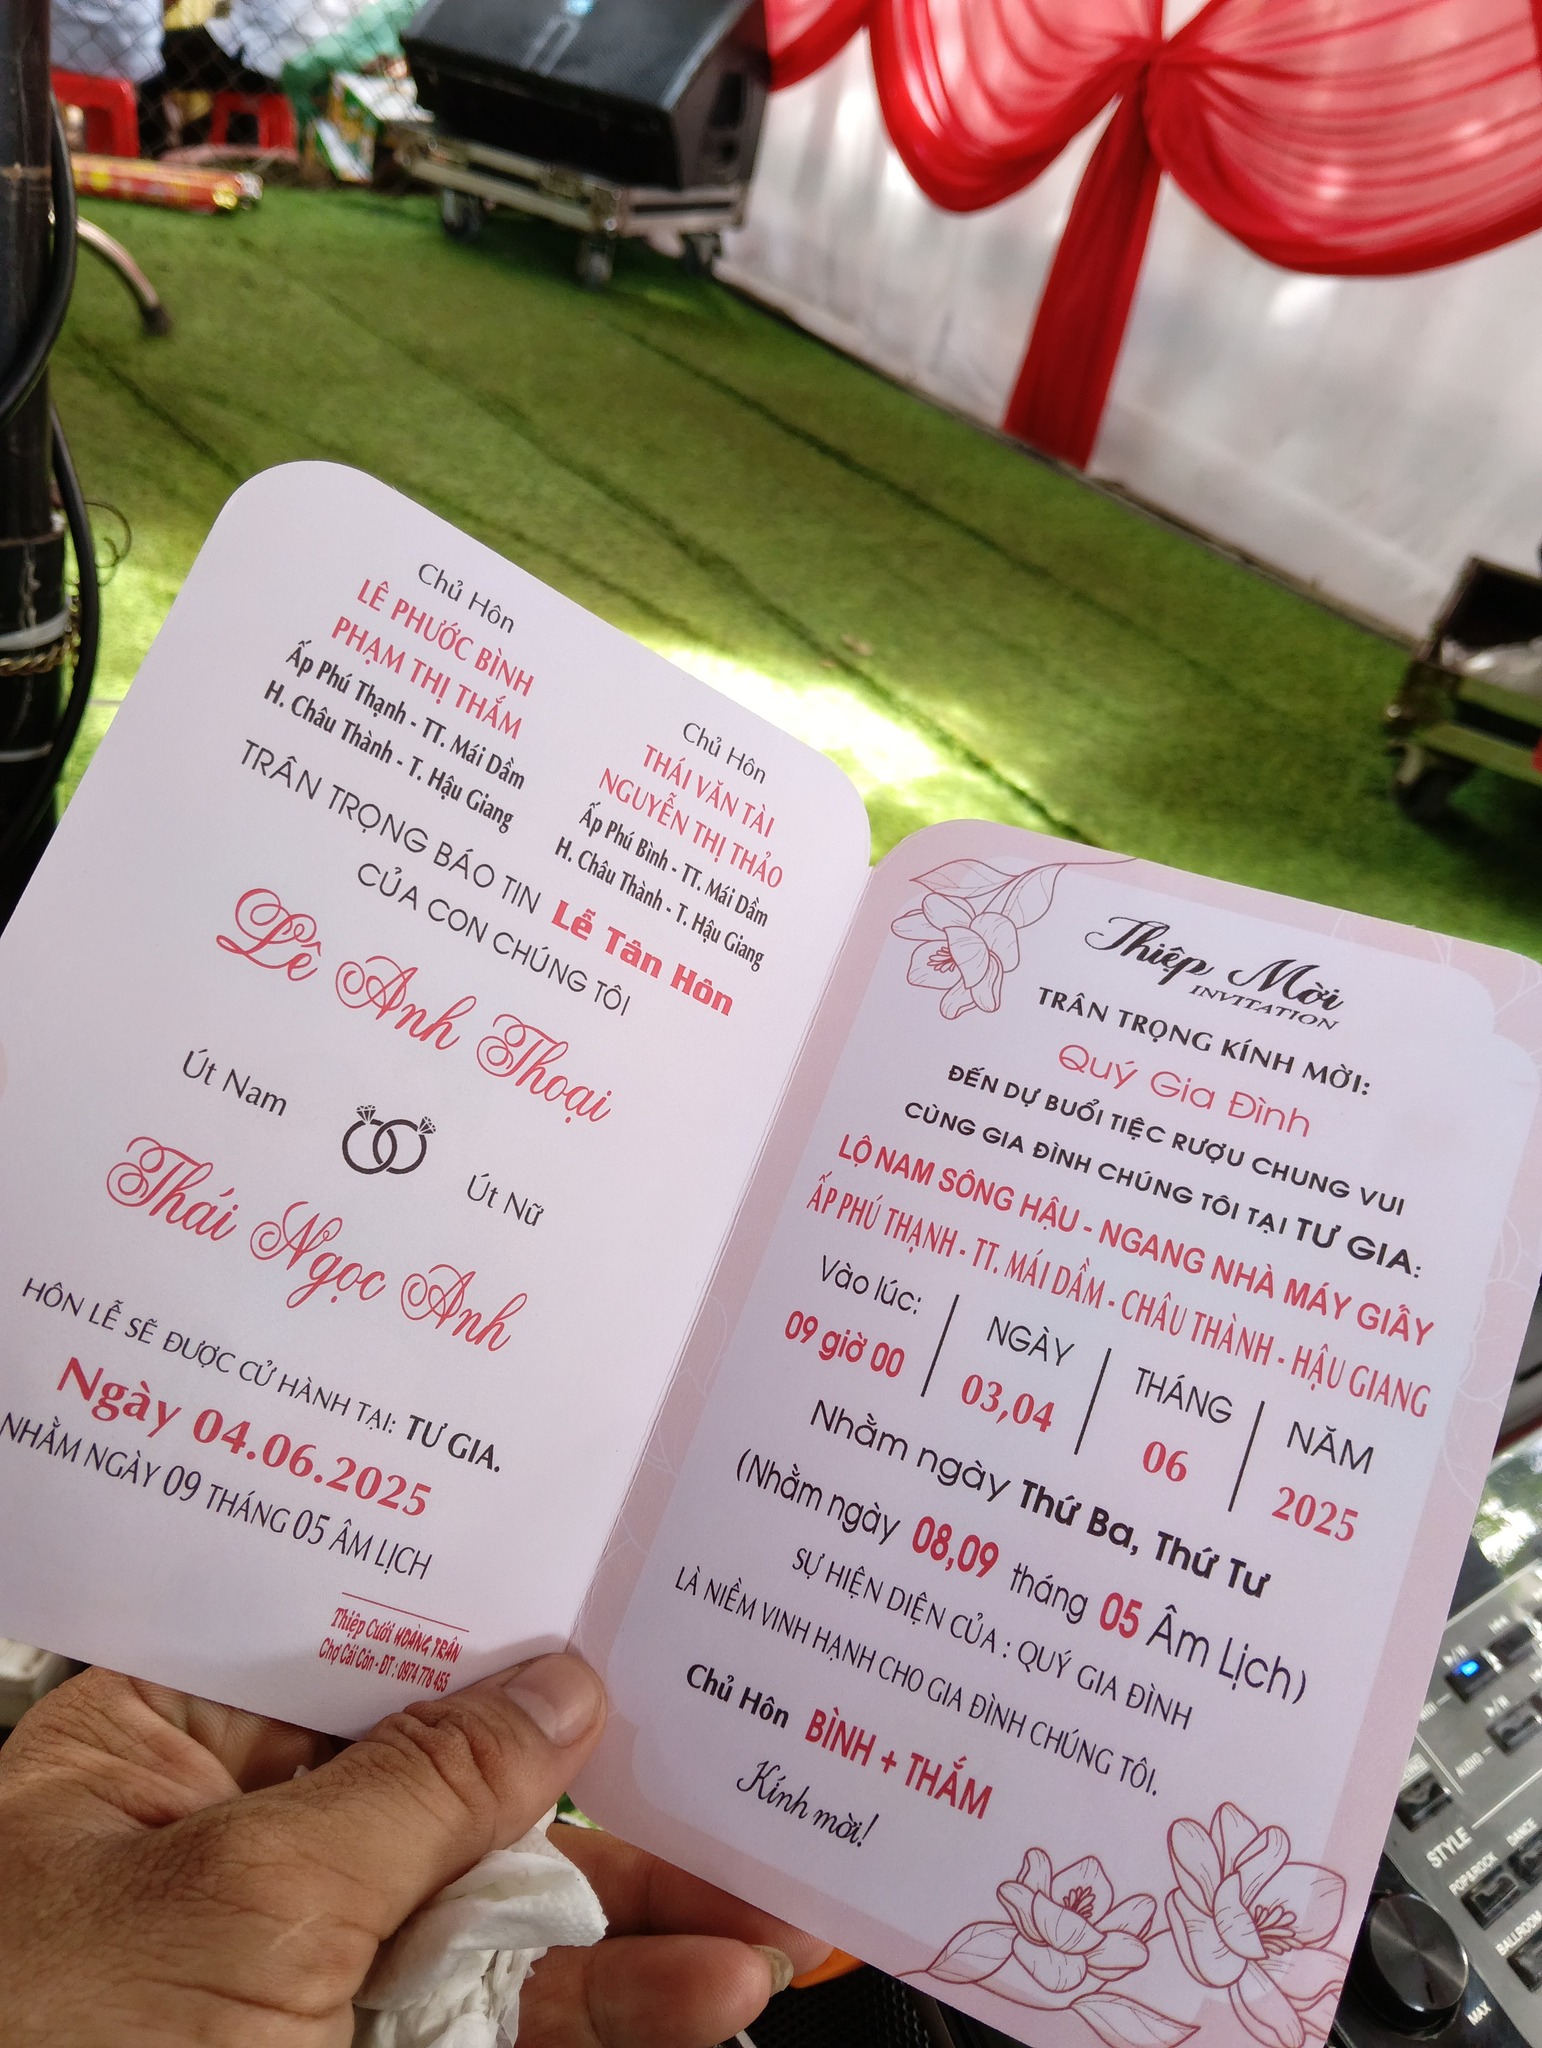 Chủ Hôn
LÊ PHƯỚC BÌNH
PHẠM THỊ THẮM
Ấp Phú Thạnh - TT. Mái Dầm
H. Châu Thành - T. Hậu Giang
Chủ Hôn
THÁI VĂN TÀI
NGUYỄN THỊ THẢO
Ấp Phú Bình - TT. Mái Dầm
H. Châu Thành - T. Hậu Giang
TRÂN TRỌNG BÁO TIN Lễ Tân Hôn
CỦA CON CHÚNG TÔI
Lê Anh Thoại
Út Nam
Út Nữ
Thái Ngọc Anh
HÔN LỄ SẼ ĐƯỢC CỬ HÀNH TẠI: TƯ GIA.
Ngày 04.06.2025
NHẰM NGÀY 09 THÁNG 05 ÂM LỊCH
Thiệp Cưới HOÀNG TRÂN
Chợ Cái Côn - ĐT : 0974 778 455
Thiệp Mời
INVITATION
TRÂN TRỌNG KÍNH MỜI:
Quý Gia Đình
ĐẾN DỰ BUỔI TIỆC RƯỢU CHUNG VUI
CÙNG GIA ĐÌNH CHÚNG TÔI TẠI TƯ GIA:
LỘ NAM SÔNG HẬU - NGANG NHÀ MÁY GIẤY
ẤP PHÚ THẠNH - TT. MÁI DẦM - CHÂU THÀNH - HẬU GIANG
Vào lúc: NGÀY THÁNG NĂM
09 giờ 00 03,04 06 2025
Nhằm ngày Thứ Ba, Thứ Tư
(Nhằm ngày 08,09 tháng 05 Âm Lịch)
SỰ HIỆN DIỆN CỦA : QUÝ GIA ĐÌNH
LÀ NIỀM VINH HẠNH CHO GIA ĐÌNH CHÚNG TÔI.
Chủ Hôn BÌNH + THẮM
Kính mời!
AUDIO
STYLE
POP&ROCK
DANCE
BALLROOM
MAX